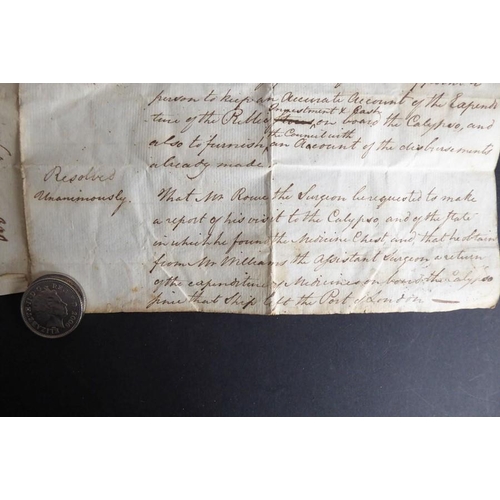 person to keep an Accurate Account of the Expendi
Investment & Cash
ture of the Public Stores, on board the Calypso, and
the Council with
also to furnish, an Account of the disbursements
already made
Resolved
Unanimously.
That Mr Rowe the Surgeon be requested to make
a report of his visit to the Calypso, and of the State
in which he found the Medicine Chest, and that he obtain
from Mr Williams the Assistant Surgeon a return
of the expenditure of Medicines on board the Calypso
since that Ship left the Port of London